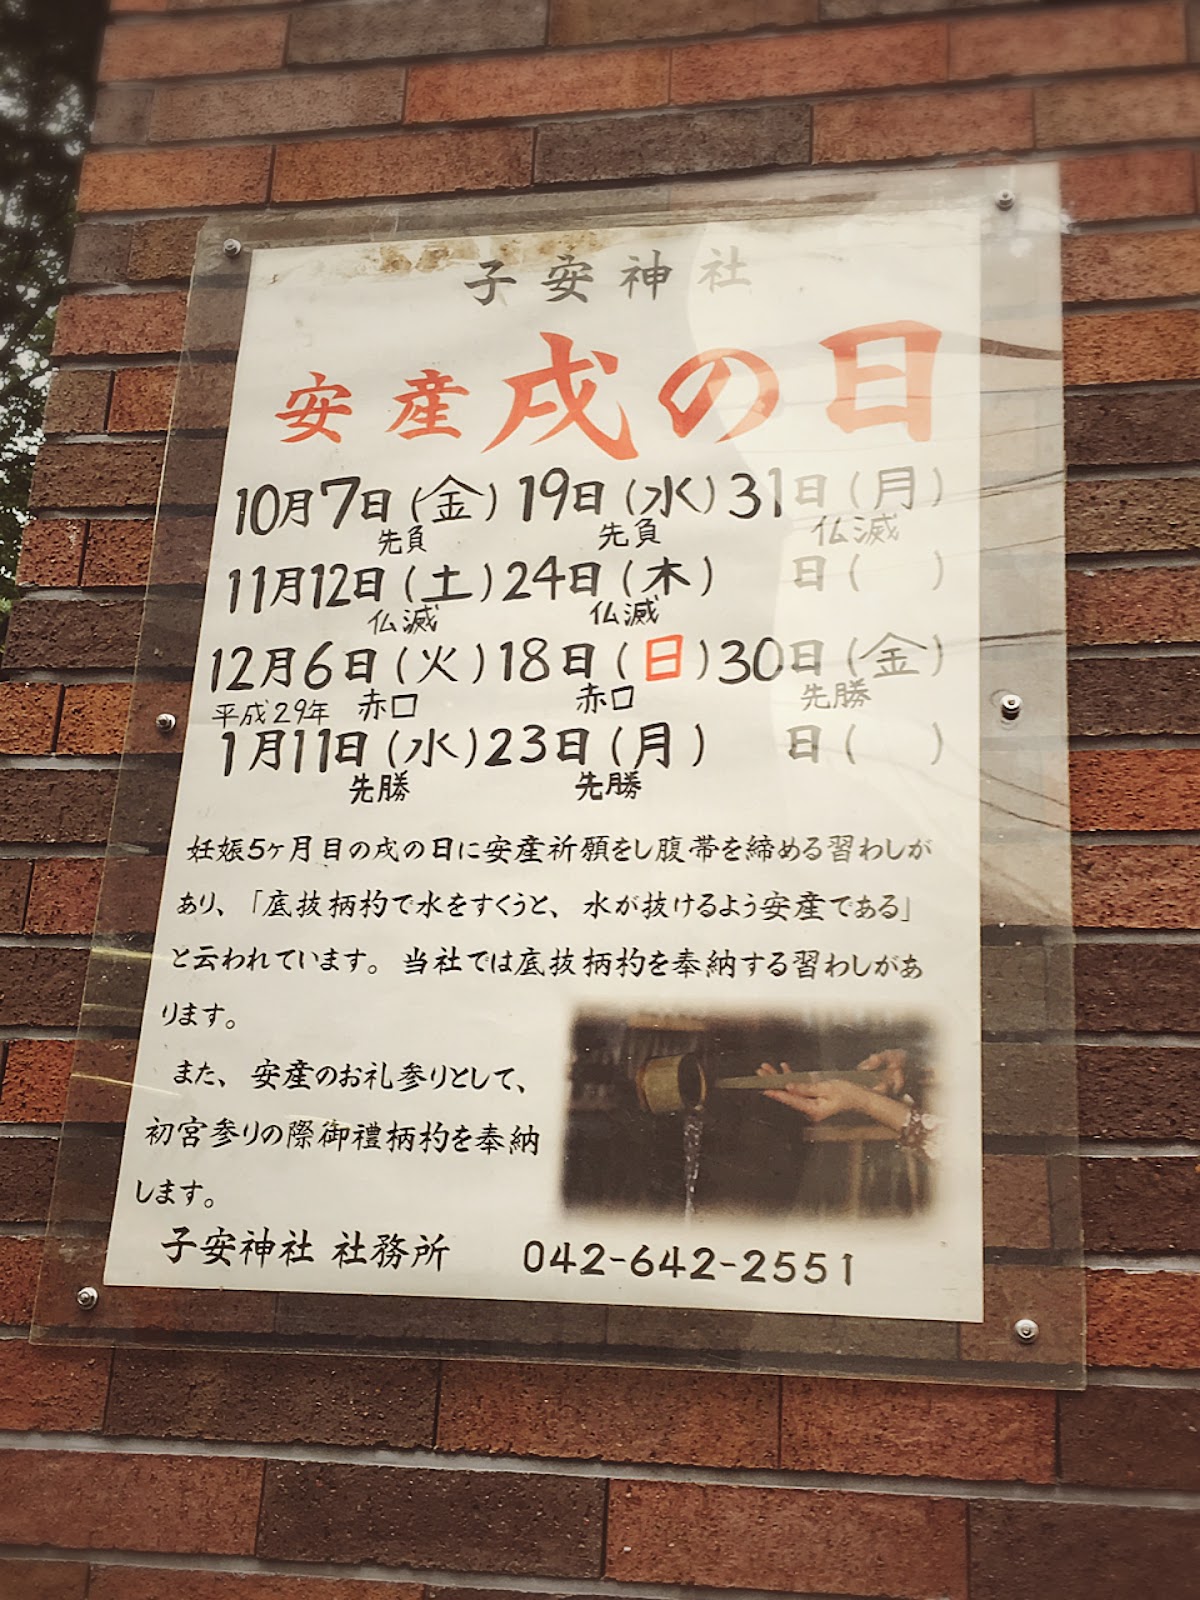 子安神社
安産戌の日
10月7日(金) 19日(水) 31日(月)
先負 先負 仏滅
11月12日(土) 24日(木) 日( )
仏滅 仏滅
12月6日(火) 18日(日) 30日(金)
平成29年 赤口 赤口 先勝
1月11日(水) 23日(月) 日( )
先勝 先勝
妊娠5ヶ月目の戌の日に安産祈願をし腹帯を締める習わしが
あり、「底抜柄杓で水をすくうと、水が抜けるよう安産である」
と云われています。当社では底抜柄杓を奉納する習わしがあ
ります。
また、安産のお礼参りとして、
初宮参りの際御禮柄杓を奉納
します。
子安神社 社務所 042-642-2551